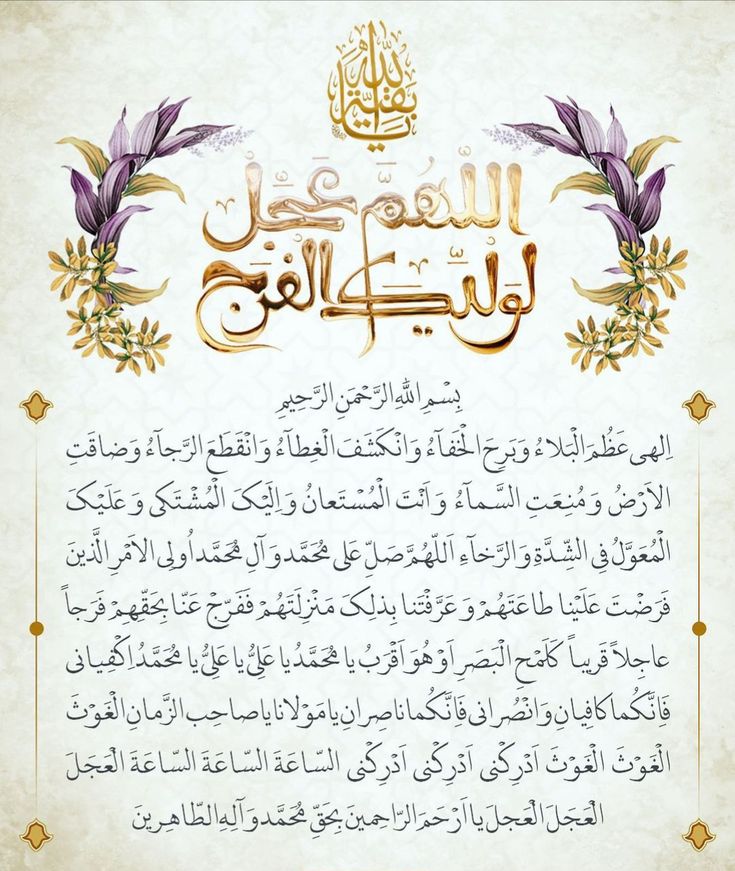 یا بقیة الله
اللهُمَّ عَجِّلْ
لِوَلیِّکَ الفَرَج
بِسْمِ اللهِ الرَّحْمَنِ الرَّحِیمِ
اِلهی عَظُمَ الْبَلاءُ وَ بَرِحَ الْخَفآءُ وَ انْکَشَفَ الْغِطآءُ وَ انْقَطَعَ الرَّجآءُ وَ ضاقَتِ
الاَرْضُ وَ مُنِعَتِ السَّمآءُ وَ اَنْتَ الْمُسْتَعانُ وَ اِلَیْکَ الْمُشْتَکی وَ عَلَیْکَ
الْمُعَوَّلُ فِی الشِّدَّةِ وَ الرَّخآءِ اَللّهُمَّ صَلِّ عَلی مُحَمَّد وَ آلِ مُحَمَّد اُولِی الاَمْرِ الَّذینَ
فَرَضْتَ عَلَیْنا طاعَتَهُمْ وَ عَرَّفْتَنا بِذلِکَ مَنْزِلَتَهُمْ فَفَرِّجْ عَنّا بِحَقِّهِمْ فَرَجاً
عاجِلاً قَریباً کَلَمْحِ الْبَصَرِ اَوْ هُوَ اَقْرَبُ یا مُحَمَّدُ یا عَلِیُّ یا عَلِیُّ یا مُحَمَّدُ اِکْفِیانی
فَاِنَّکُما کافِیانِ وَ انْصُرانی فَاِنَّکُما ناصِرانِ یا مَوْلانا یا صاحِبَ الزَّمانِ الْغَوْثَ
الْغَوْثَ الْغَوْثَ اَدْرِکْنی اَدْرِکْنی اَدْرِکْنی السّاعَةَ السّاعَةَ السّاعَةَ الْعَجَلَ
الْعَجَلَ الْعَجَلَ یا اَرْحَمَ الرّاحِمینَ بِحَقِّ مُحَمَّد وَ آلِهِ الطّاهِرینَ